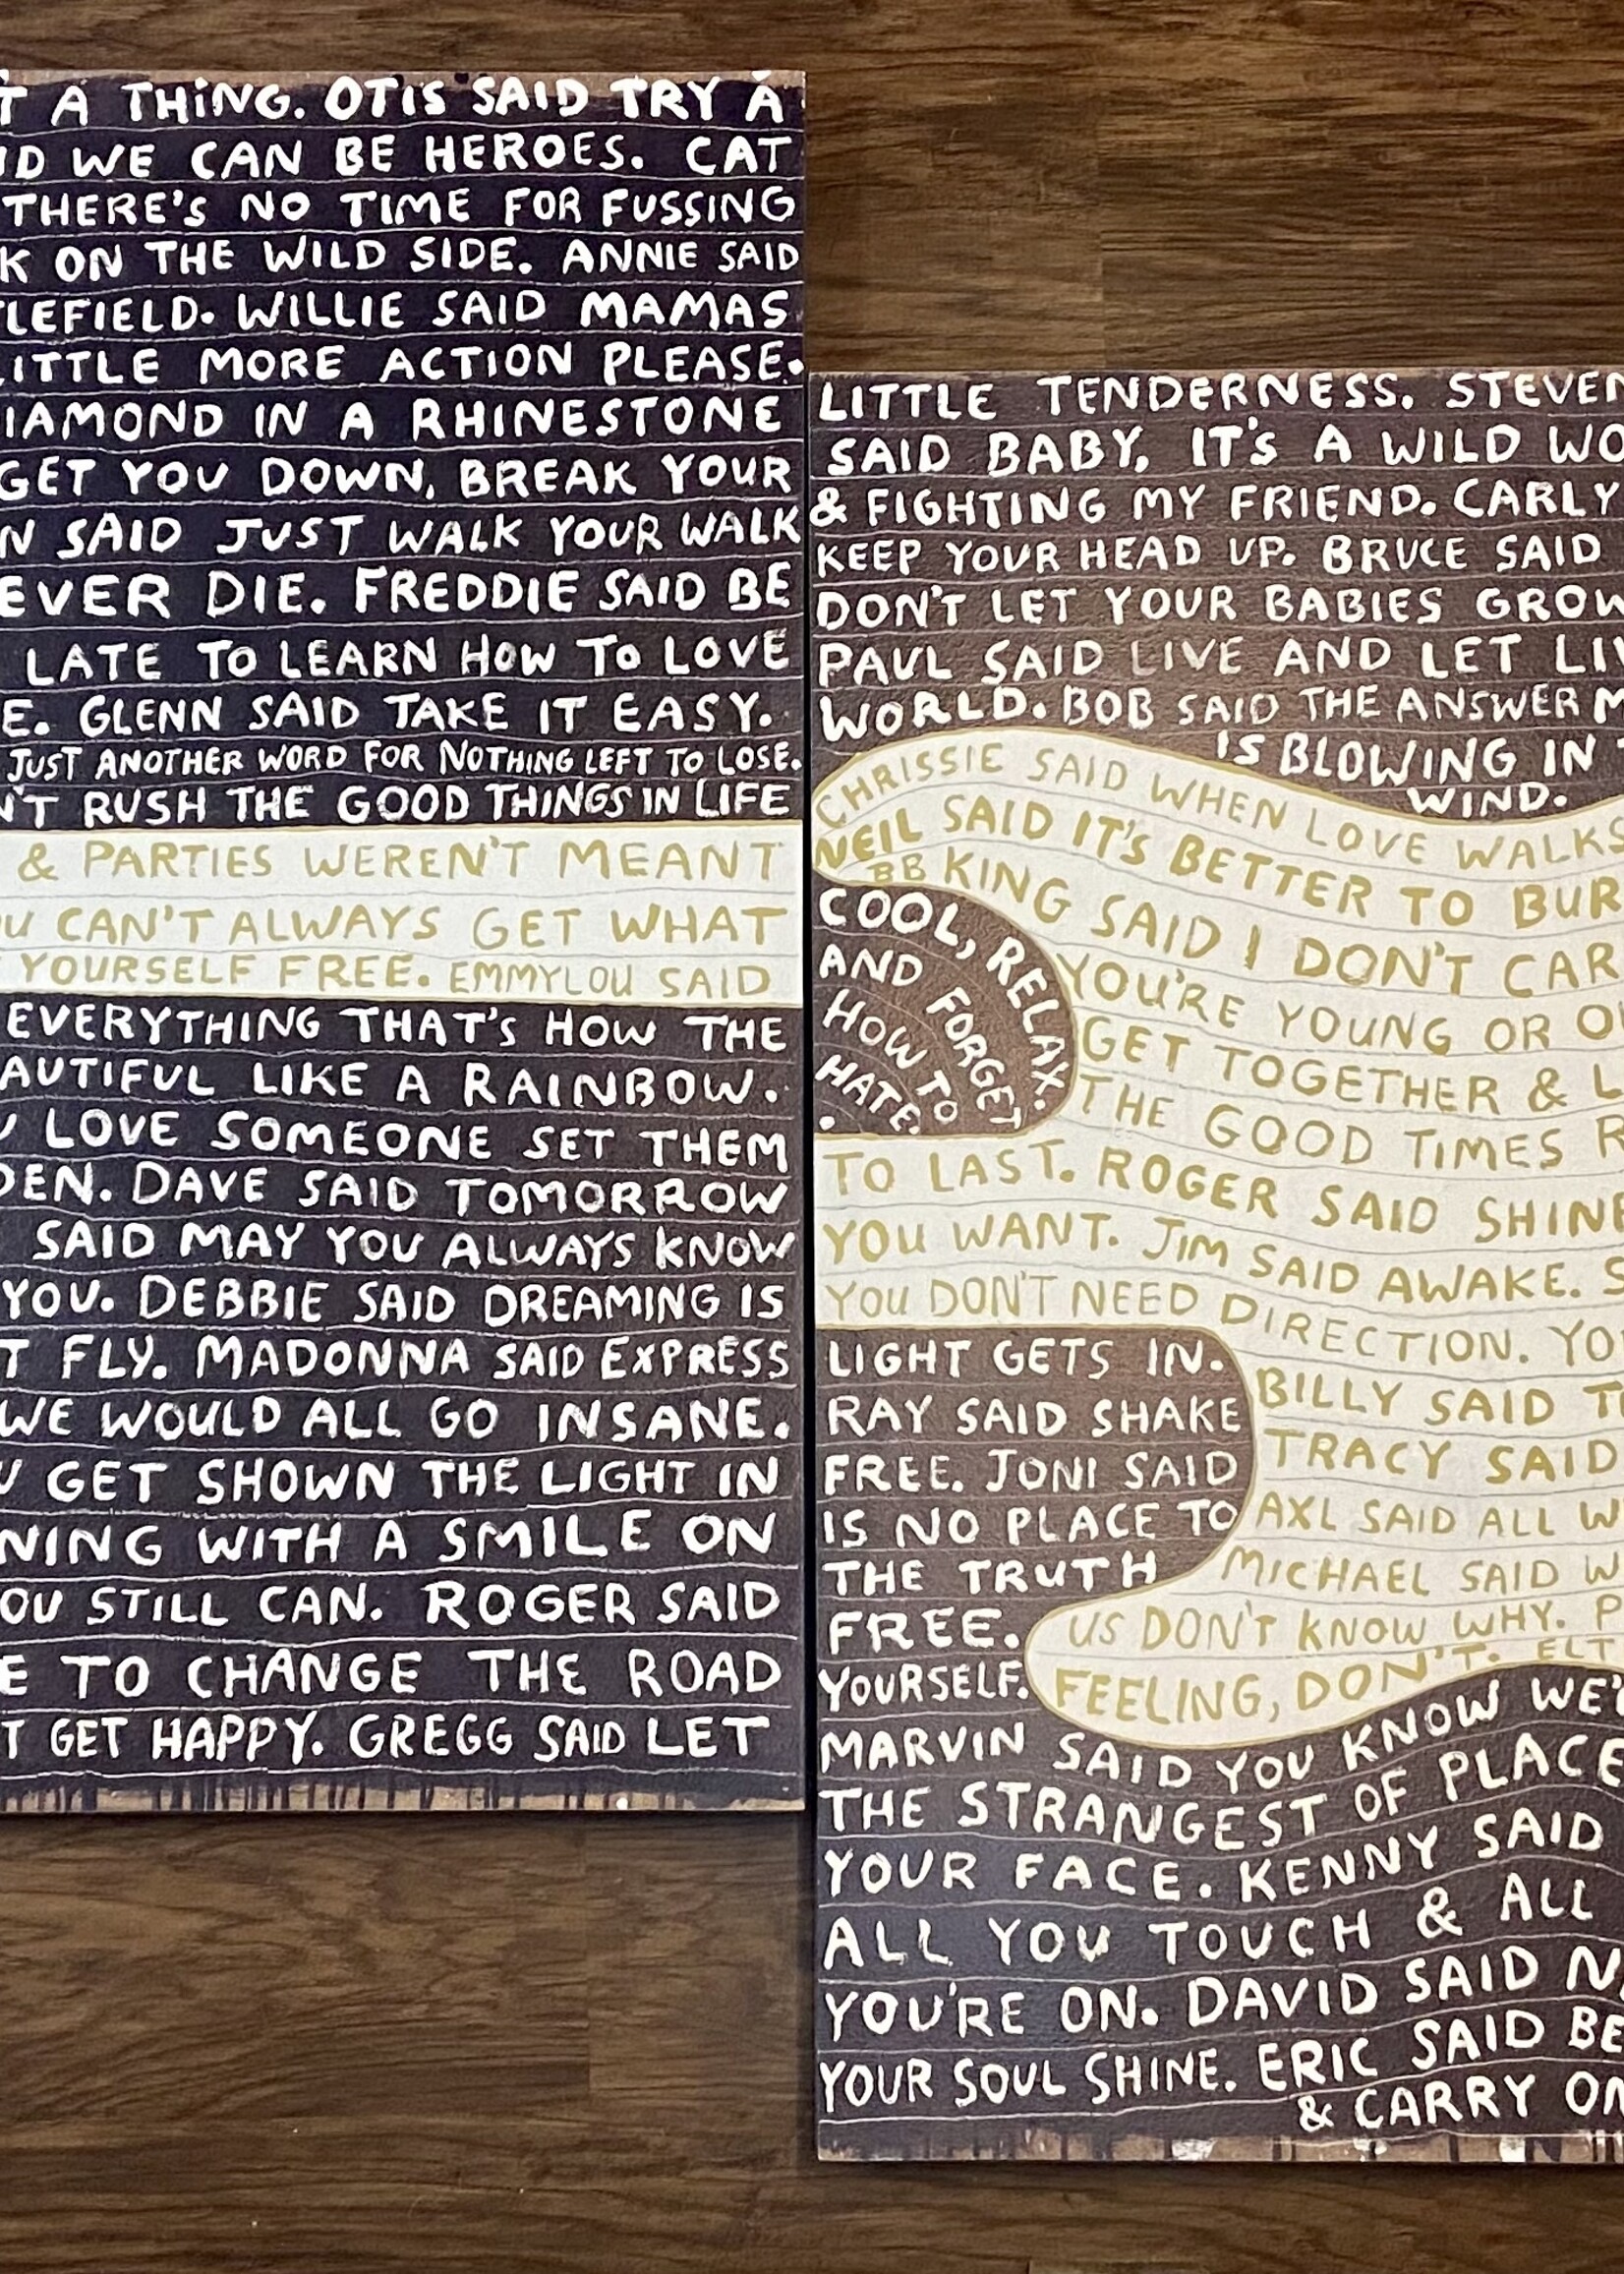 T A THING. OTIS SAID TRY A
ID WE CAN BE HEROES. CAT
THERE'S NO TIME FOR FUSSING
K ON THE WILD SIDE. ANNIE SAID
TLEFIELD. WILLIE SAID MAMAS
LITTLE MORE ACTION PLEASE.
IAMOND IN A RHINESTONE
GET YOU DOWN, BREAK YOUR
N SAID JUST WALK YOUR WALK
EVER DIE. FREDDIE SAID BE
LATE TO LEARN HOW TO LOVE
E. GLENN SAID TAKE IT EASY.
JUST ANOTHER WORD FOR NOTHING LEFT TO LOSE.
N'T RUSH THE GOOD THINGS IN LIFE
& PARTIES WEREN'T MEANT
U CAN'T ALWAYS GET WHAT
YOURSELF FREE. EMMYLOU SAID
EVERYTHING THAT'S HOW THE
AUTIFUL LIKE A RAINBOW.
U LOVE SOMEONE SET THEM
DEN. DAVE SAID TOMORROW
SAID MAY YOU ALWAYS KNOW
YOU. DEBBIE SAID DREAMING IS
T FLY. MADONNA SAID EXPRESS
WE WOULD ALL GO INSANE.
U GET SHOWN THE LIGHT IN
NING WITH A SMILE ON
OU STILL CAN. ROGER SAID
E TO CHANGE THE ROAD
T GET HAPPY. GREGG SAID LET
LITTLE TENDERNESS. STEVEN
SAID BABY, IT'S A WILD WO
& FIGHTING MY FRIEND. CARLY
KEEP YOUR HEAD UP. BRUCE SAID
DON'T LET YOUR BABIES GROW
PAUL SAID LIVE AND LET LIV
WORLD. BOB SAID THE ANSWER M
IS BLOWING IN
WIND.
CHRISSIE SAID WHEN LOVE WALKS
NEIL SAID IT'S BETTER TO BUR
BB KING SAID I DON'T CAR
COOL, RELAX.
AND FORGET
HOW TO
HATE.
YOU'RE YOUNG OR O
GET TOGETHER & L
THE GOOD TIMES R
TO LAST. ROGER SAID SHINE
YOU WANT. JIM SAID AWAKE. S
YOU DON'T NEED DIRECTION. YO
LIGHT GETS IN.
BILLY SAID T
RAY SAID SHAKE
TRACY SAID
FREE. JONI SAID
AXL SAID ALL W
IS NO PLACE TO
MICHAEL SAID W
THE TRUTH
US DON'T KNOW WHY. P
FREE.
FEELING, DON'T. ELT
YOURSELF.
MARVIN SAID YOU KNOW WE'
THE STRANGEST OF PLACE
YOUR FACE. KENNY SAID
ALL YOU TOUCH & ALL
YOU'RE ON. DAVID SAID N
YOUR SOUL SHINE. ERIC SAID BE
& CARRY ON